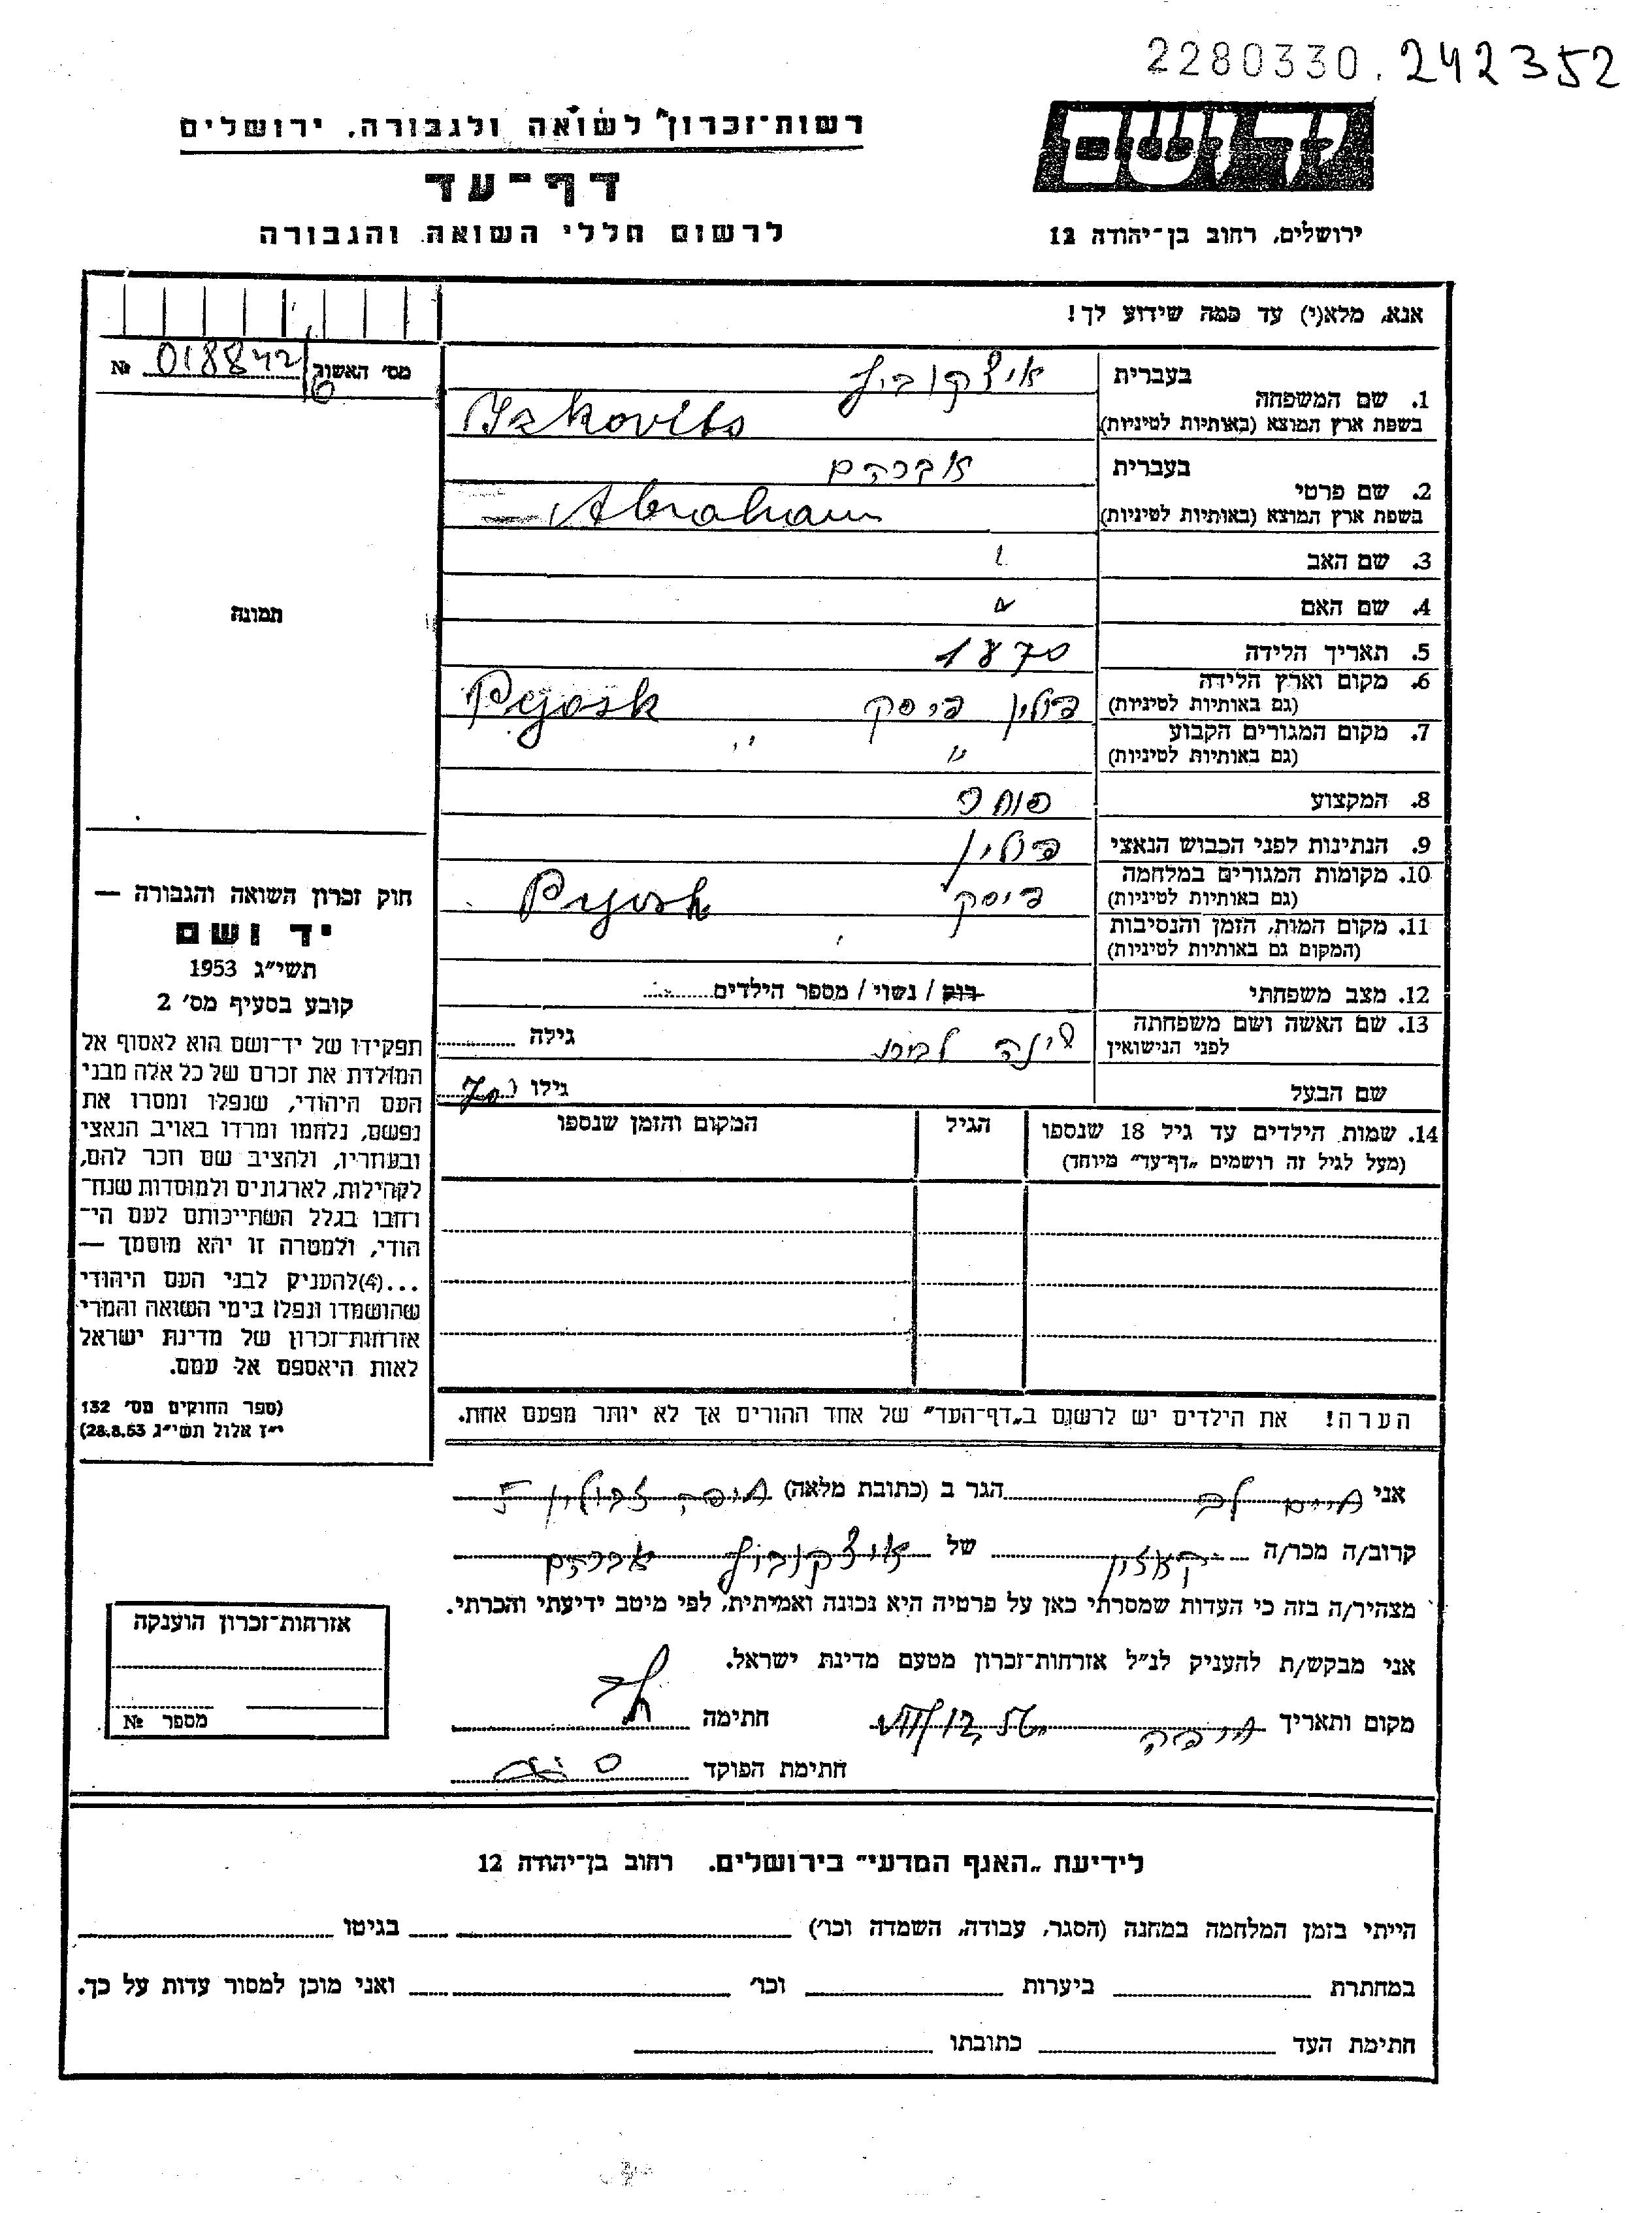 2280330. 242352
רשות־זכרון לשואה ולגבורה, ירושלים
דף־עד
לרשום חללי השואה והגבורה
ידושם
ירושלים, רחוב בן־יהודה 12
אנא, מלא(י) עד כמה שידוע לך!
מס׳ האשור № 018842/6
תמונה
בעברית איצקוביץ
1. שם המשפחה
בשפת ארץ המוצא (באותיות לטיניות) Izkovits
בעברית אברהם
2. שם פרטי
בשפת ארץ המוצא (באותיות לטיניות) Abraham
3. שם האב
4. שם האם
5. תאריך הלידה 1870
6. מקום וארץ הלידה
(גם באותיות לטיניות) פולין פיוסק Pejosk
7. מקום המגורים הקבוע
(גם באותיות לטיניות) " "
8. המקצוע סוחר
9. הנתינות לפני הכבוש הנאצי פולין
10. מקומות המגורים במלחמה
(גם באותיות לטיניות) פיוסק Pejosk
11. מקום המות, הזמן והנסיבות
(המקום גם באותיות לטיניות)
12. מצב משפחתי רוק / נשוי / מספר הילדים
13. שם האשה ושם משפחתה
לפני הנישואין גילה
שם הבעל גילו 70
14. שמות הילדים עד גיל 18 שנספו
(מעל לגיל זה רושמים „דף־עד״ מיוחד)
הגיל
המקום והזמן שנספו
הערה! את הילדים יש לרשום ב„דף־העד״ של אחד ההורים אך לא יותר מפעם אחת.
חוק זכרון השואה והגבורה —
יד ושם
תשי״ג 1953
קובע בסעיף מס׳ 2
תפקידו של יד־ושם הוא לאסוף אל
המולדת את זכרם של כל אלה מבני
העם היהודי, שנפלו ומסרו את
נפשם, נלחמו ומרדו באויב הנאצי
ובעוזריו, ולהציב שם וזכר להם,
לקהילות, לארגונים ולמוסדות שנח־
רחבו בגלל השתייכותם לעם הי־
הודי, ולמטרה זו יהא מוסמך —
...(4) להעניק לבני העם היהודי
שהושמדו ונפלו בימי השואה והמרי
אזרחות־זכרון של מדינת ישראל
לאות היאספם אל עמם.
(ספר החוקים מס׳ 132
י״ז אלול תשי״ג 28.8.53)
אני חיים לב הגר ב (כתובת מלאה) חיפה זבולון 5
קרוב/ה מכר/ה של איצקוביץ אברהם
מצהיר/ה בזה כי העדות שמסרתי כאן על פרטיה היא נכונה ואמיתית, לפי מיטב ידיעתי והכרתי.
אני מבקש/ת להעניק לנ״ל אזרחות־זכרון מטעם מדינת ישראל.
מקום ותאריך חיפה חתימה
חתימת הפוקד
אזרחות־זכרון הוענקה
מספר №
לידיעת „האגף המדעי״ בירושלים. רחוב בן־יהודה 12
הייתי בזמן המלחמה במחנה (הסגר, עבודה, השמדה וכו׳) בגיטו
במחתרת ביערות וכו׳ ואני מוכן למסור עדות על כך.
חתימת העד כתובתו